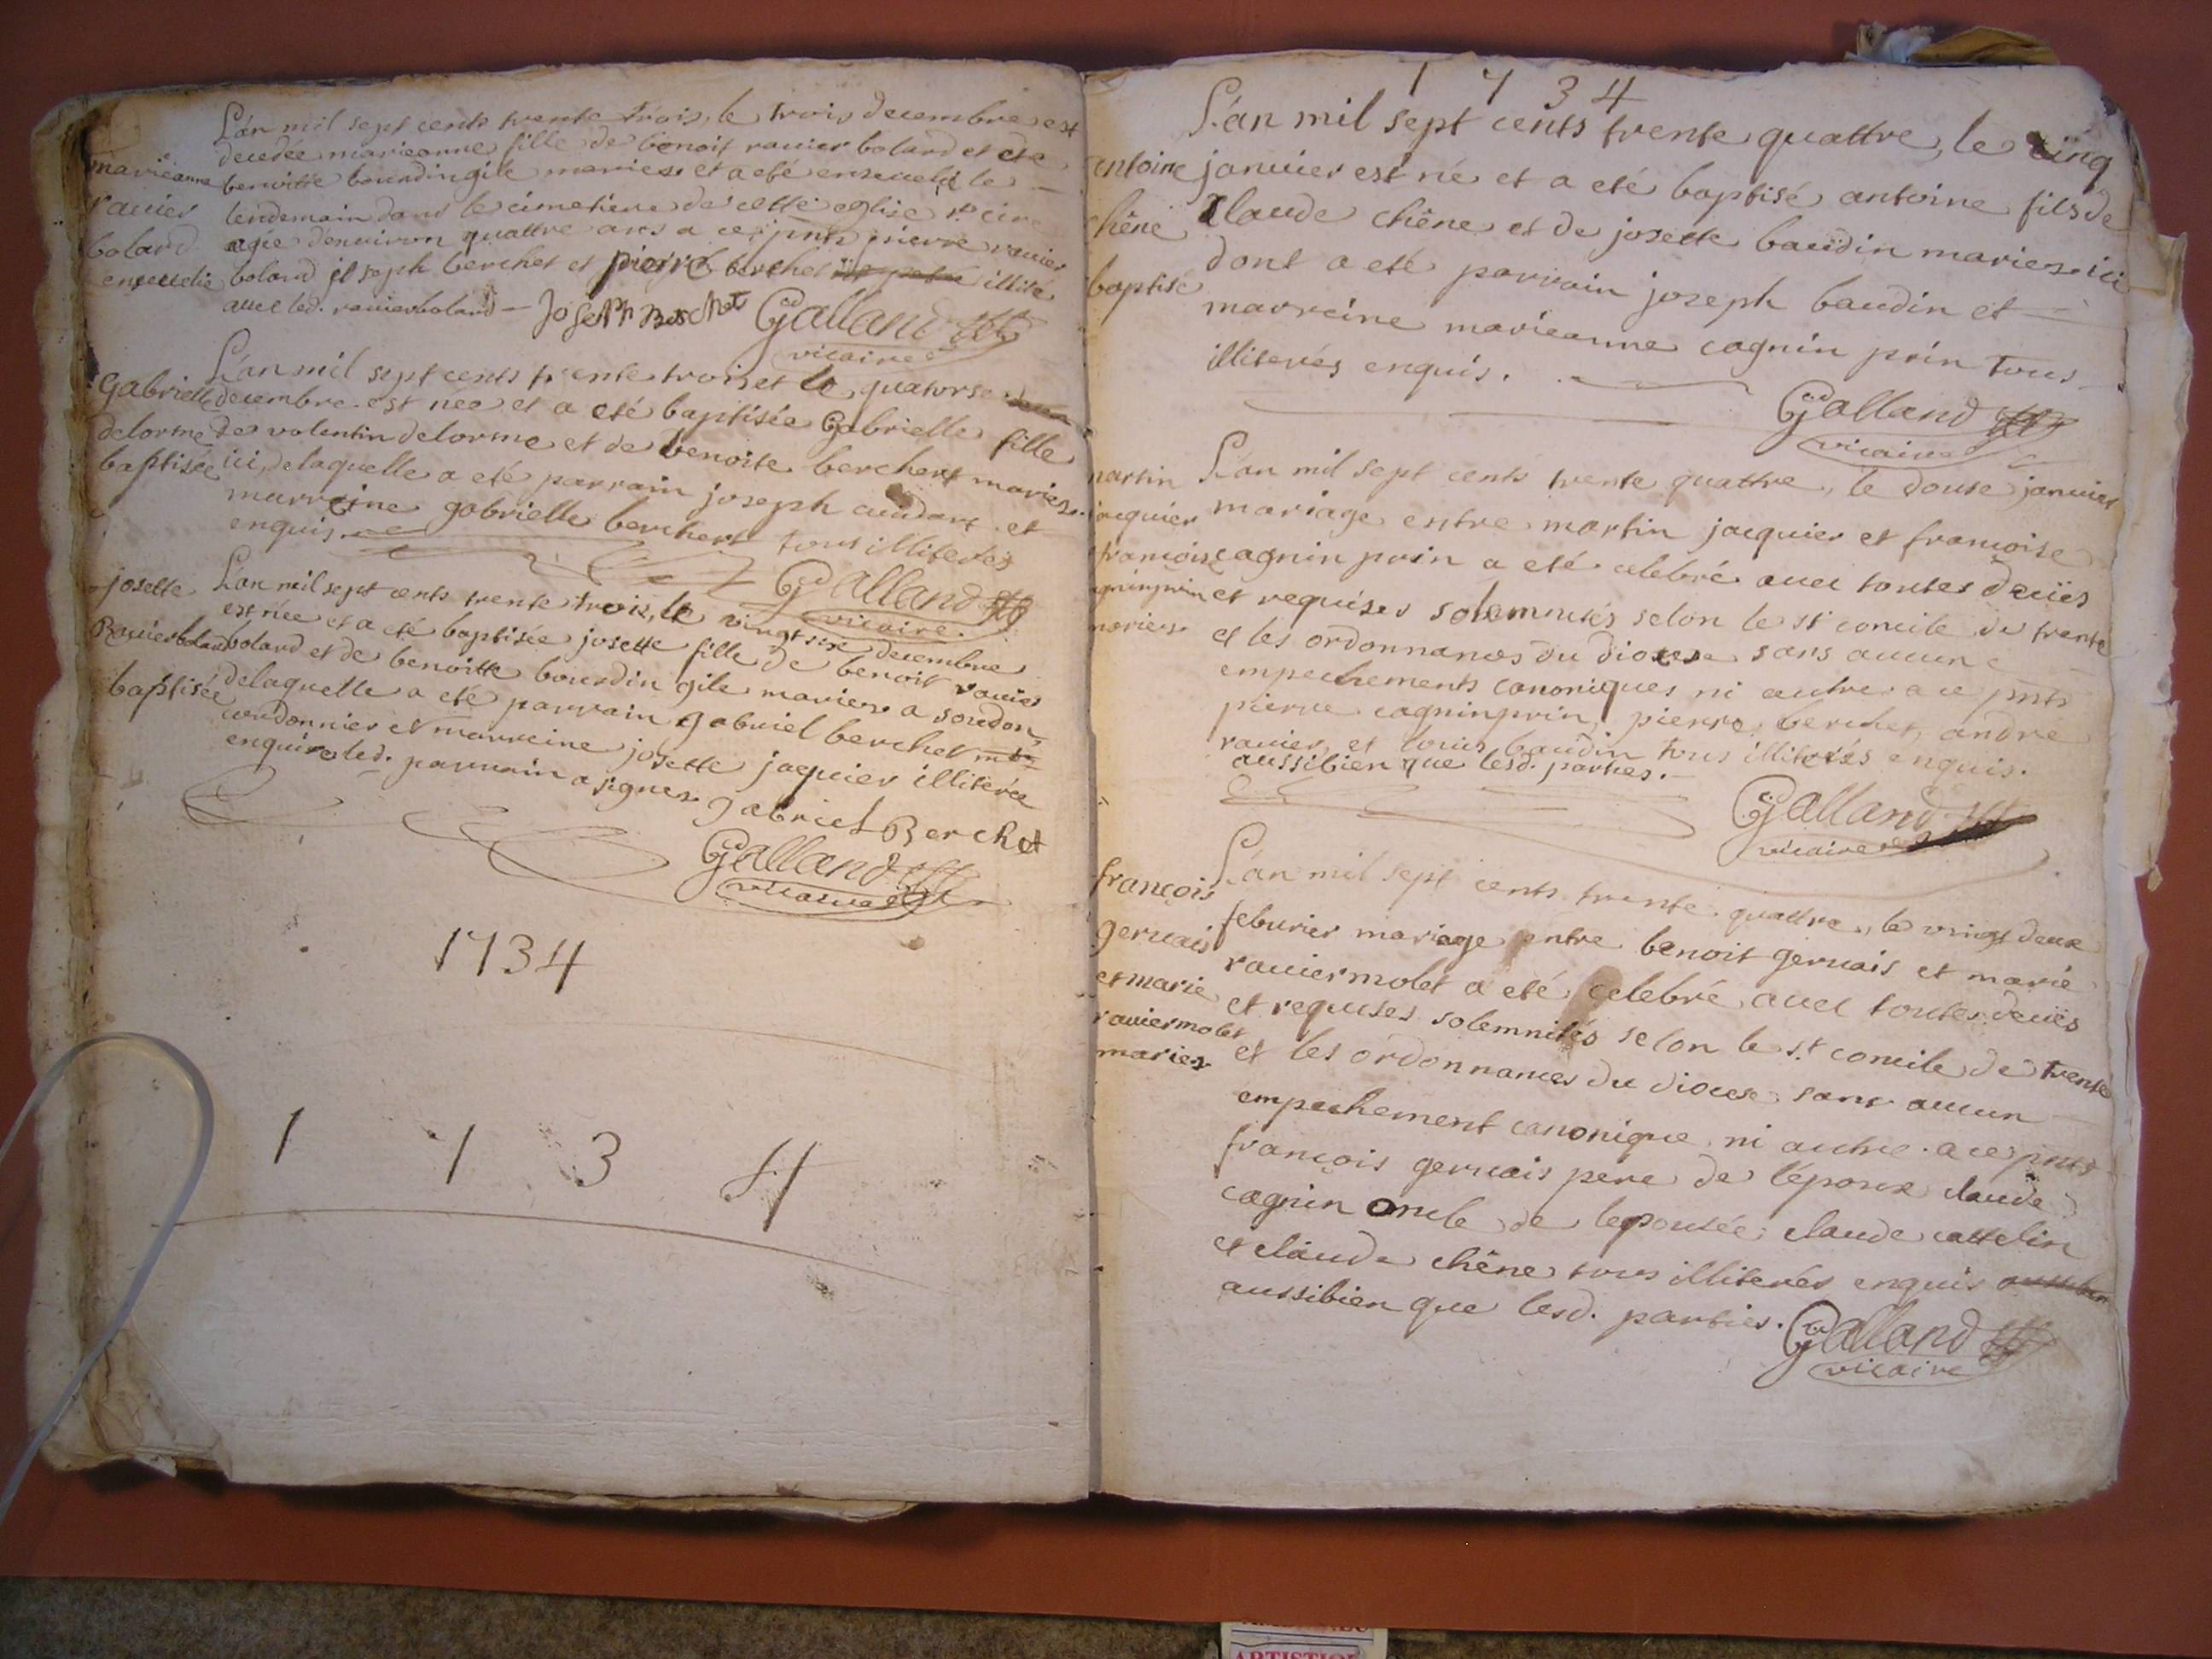 L'an mil sept cents trente trois, le trois decembre est
decedée marieanne fille de benoit rauier bolard et de
marieanne benoitte bourdin gile maries et a eté enseuelie le
rauier lendemain dans le cimetiere de cette eglise st
bolard agée denuiron quattre ans a ce pnts pierre rauier
enseuelie bolard joseph berchet et pierre berchet illité
auec led. rauierbolard Joseph Berchet Galland
vicaire
L'an mil sept cents trente trois et le quatorse
Gabrielle decembre est nee et a eté baptisée Gabrielle fille
delorme de valentin delorme et de benoite berchert maries
baptisée ici, delaquelle a eté parrain joseph et
marreine gabrielle berchert tous illiterés
enquis.
Galland
vicaire.
josette L'an mil sept cents trente trois, le vingt six decembre
est née et a eté baptisée josette fille de benoit rauier
Rauierbolard bolard et de benoitte bourdin gile maries a soudon,
baptisée delaquelle a eté parrain gabriel berchet
cordonnier et marreine josette jaquier illiterée
enquise led. parrain a signer. Gabriel Berchet
Galland
vicaire
1734
1 7 3 4
1 7 3 4
L'an mil sept cents trente quattre, le cinq
antoine januier est né et a eté baptisé antoine fils de
chêne claude chêne et de josette baudin maries ici
baptisé dont a eté parrain joseph baudin et
marreine marieanne cagnin prin tous
illiterés enquis.
Galland
vicaire
martin L'an mil sept cents trente quattre, le douse januier
jacquier mariage entre martin jacquier et francoise
francoise cagnin prin a eté celebré auec toutes deuës
cagninprin et requises solemnités selon le st concile de trente
maries et les ordonnances du diocese sans aucun
empechements canoniques ni autre a ce pnts
pierre cagninprin, pierre berchet, andré
rauier, et louis baudin tous illiterés enquis.
aussibien que lesd. parties.
Galland
vicaire
L'an mil sept cents trente quattre, le vingt deux
françois feburier mariage entre benoit geruais et marie
geruais rauiermolet a eté celebré auec toutes deuës
et marie et requises solemnités selon le st concile de trente
rauiermolet et les ordonnances du diocese sans aucun
maries empechement canonique ni autre a ce pnts
françois geruais pere de l'époux claude
cagnin oncle de lepousée, claude cattelin
et claude chêne tous illiterés enquis
aussibien que lesd. parties. Galland
vicaire